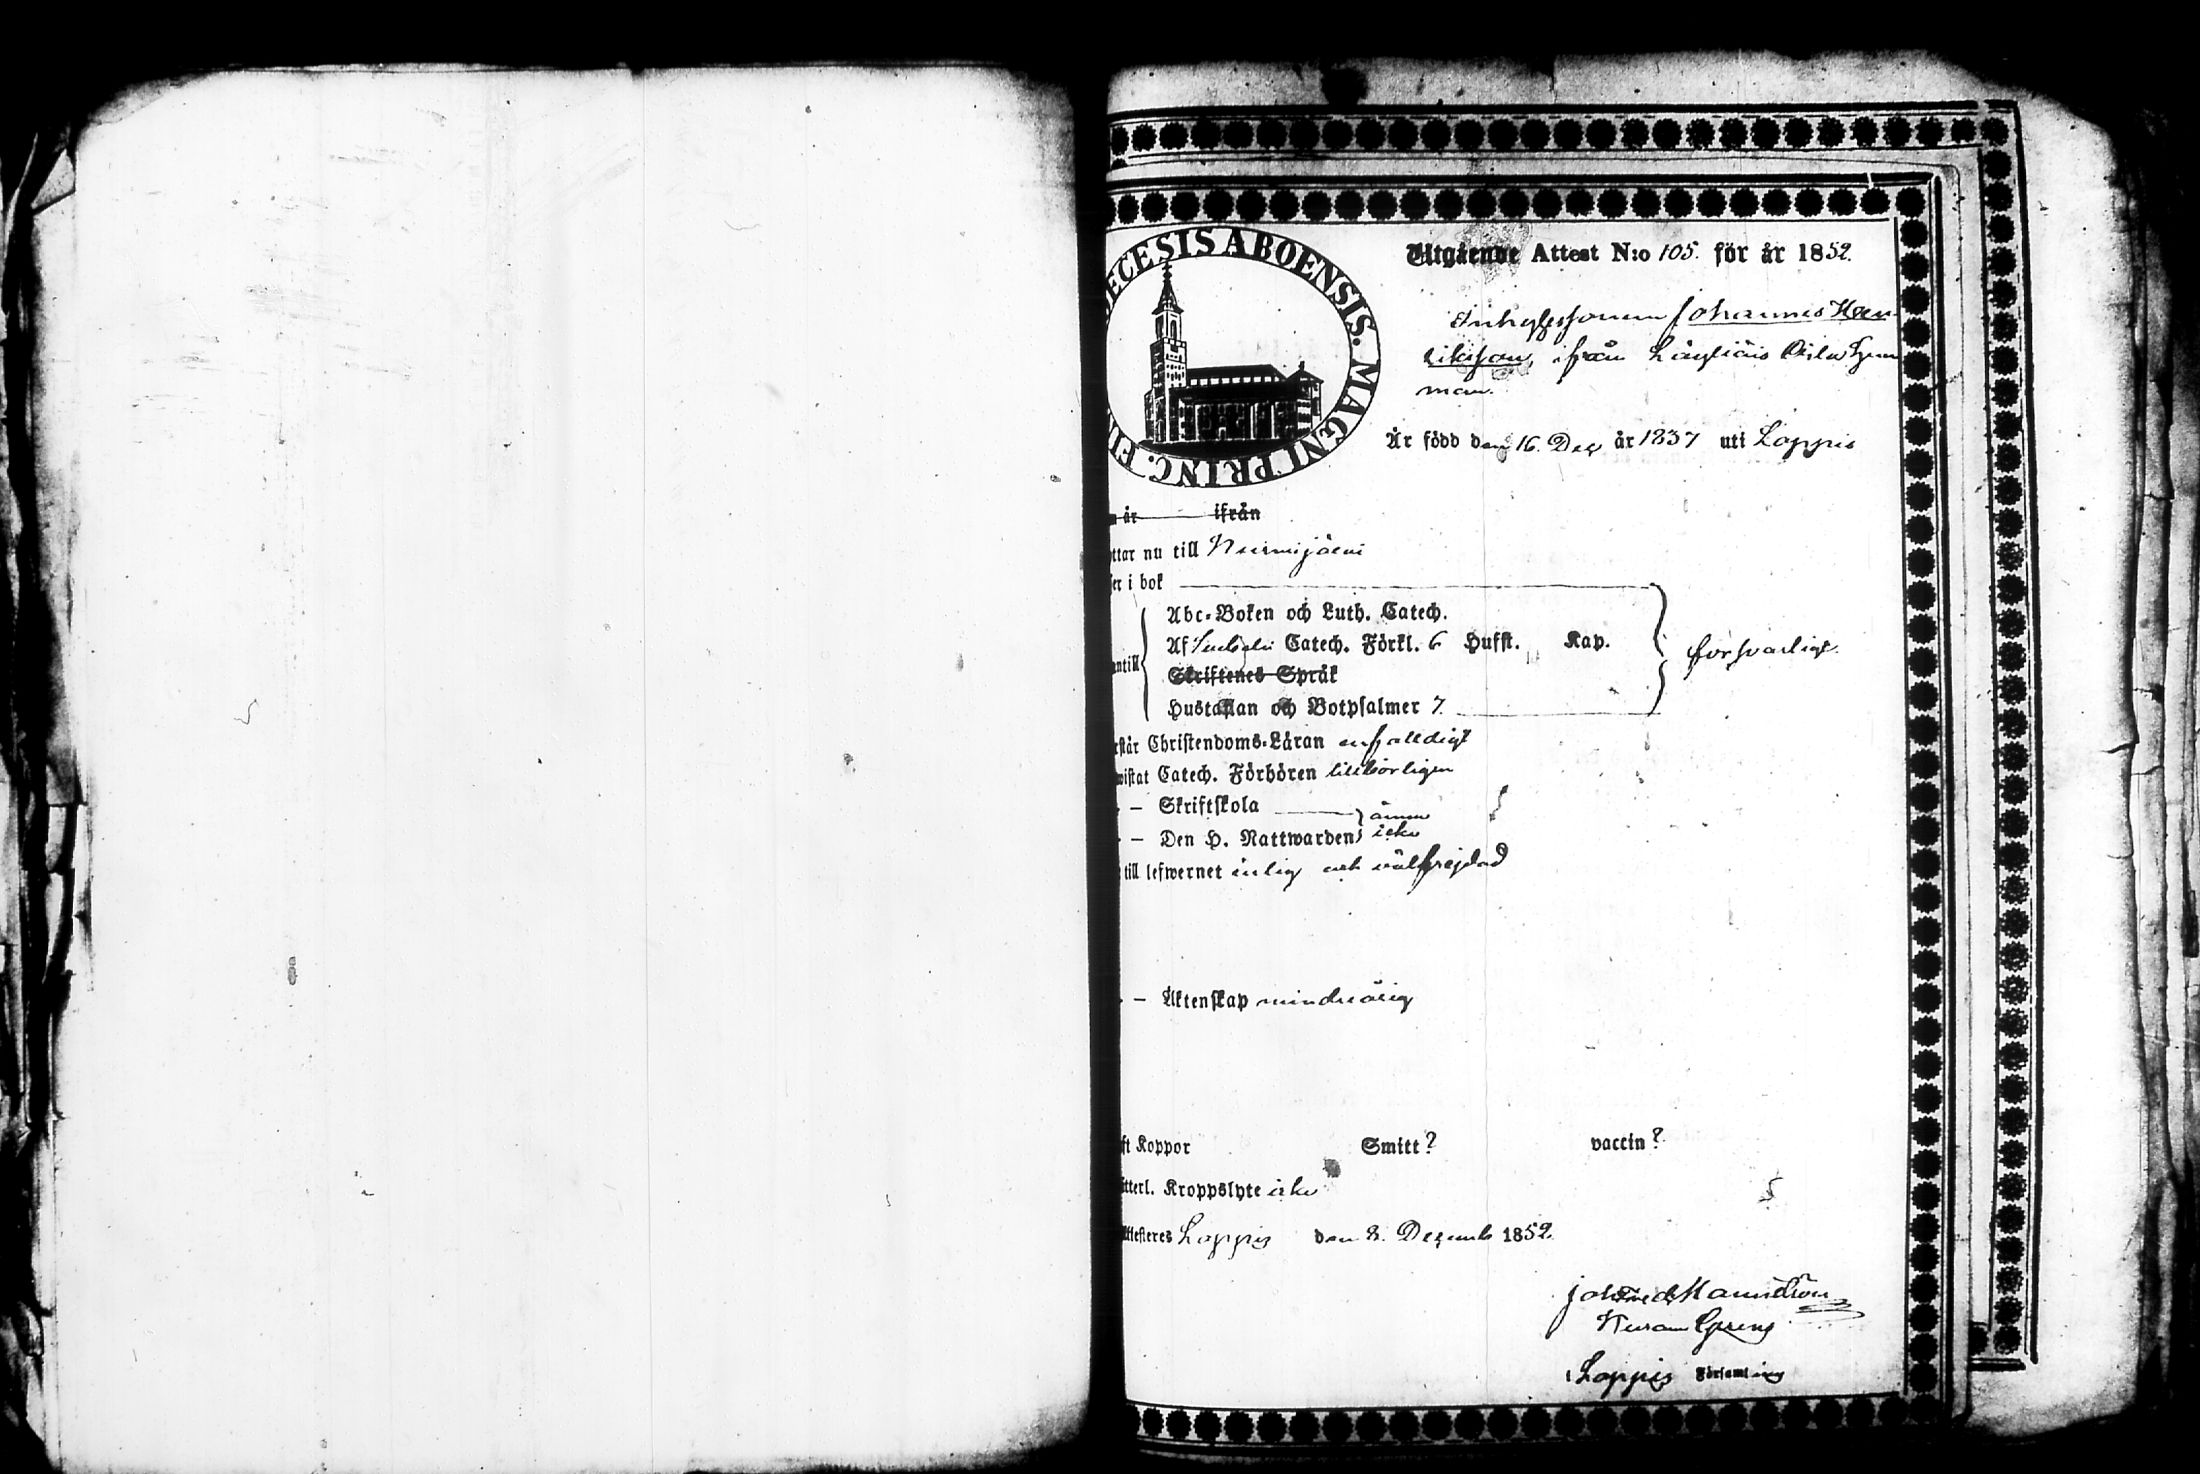 ECESIS ABOENSIS. MAGNI PRINC. FI
Utgående Attest N:o 105. för år 1852.
Inhysessonen Johannes Hen-
riksson, ifrån Längliäis
man.
Är född den 16. Dec år 1837 uti Loppis
n år ifrån
ttar nu till Nurmijärvi
ser i bok
Abc-Boken och Luth. Catech.
Af Catech. Förkl. 6 Hufst. Kap.
antill
Skriftenes Språk
försvarligt.
Hustaflan och Botpsalmer 7.
rstår Christendoms-Läran enfalldigt
wistat Catech. Förhören tillbörligen
- - Skriftskola ännu
- - Den H. Nattwarden icke
till lefwernet ärlig och välfrejdad
- - Äktenskap mindreårig
ft Koppor Smitt? vaccin?
tterl. Kroppslyte icke
Attesteres Loppis den 8. Decemb 1852.
Joh Fred
Loppis Församling